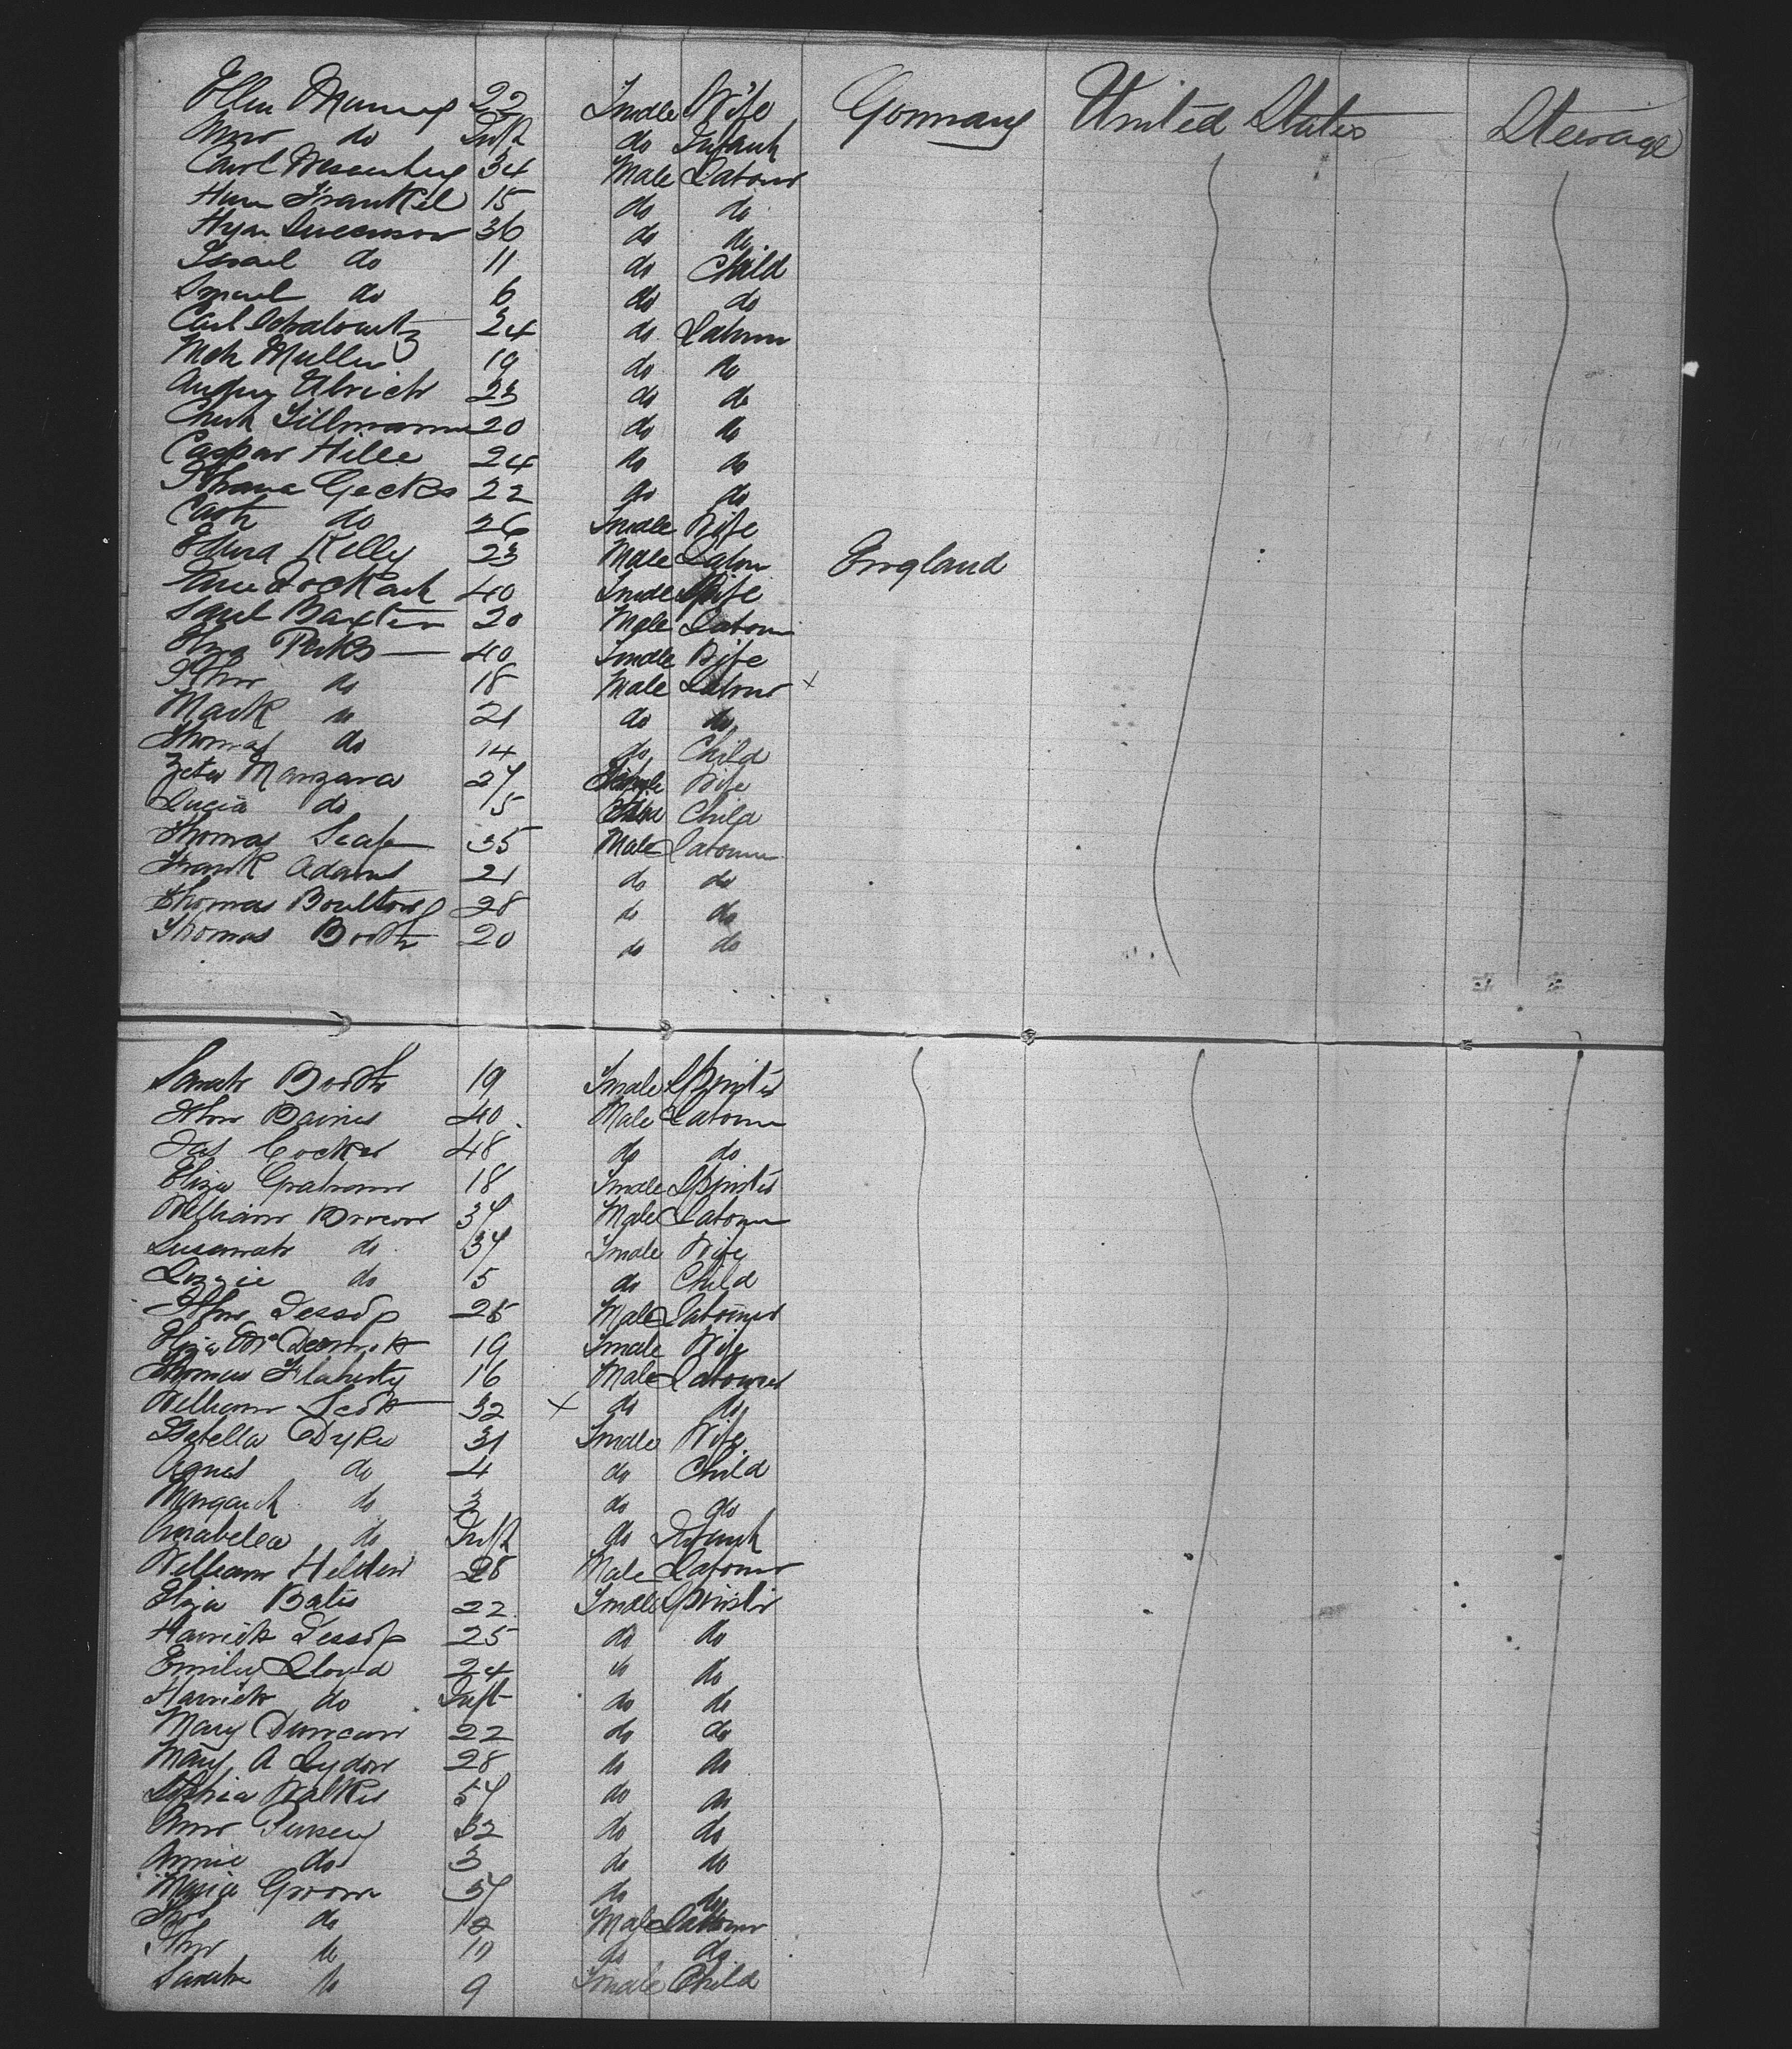 Ellen 22 Female Wife Germany United States Steerage
Ann do Inft do Infant
Carl 34 Male Labour
Frankel 15 do do
36 do do
Israel do 11 do Child
do 6 do do
Carl 24 do Labour
Muller 19 do do
Ulrich 23 do do
Tillmann 20 do do
Caspar Hille 24 do do
22 do do
Cath do 26 Female Wife
Kelly 23 Male Labour England
40 Female Wife
Saml Baxter 20 Male Labour
40 Female Wife
John do 18 Male Labour x
Mark do 21 do do
Thomas do 14 do Child
27 Female Wife
Lucia do 5 Child
Thomas 35 Male Labour
Frank Adams 21 do do
Thomas Boulton 28 do do
Thomas Booth 20 do do
Sarah Booth 19 Female Spinster
John Baines 40 Male Labour
Jas Cocker 48 do do
Eliza Graham 18 Female Spinster
William Brown 37 Male Labour
Susannah do 37 Female Wife
Lizzie do 5 do Child
John Jessop 25 Male Labourer
Eliza 19 Female Wife
Thomas Flaherty 16 Male Labourer
William Scott 32 x do do
Isabella Dykes 31 Female Wife
Agnes do 4 do Child
Margaret do 3 do do
Annabella do Inft do Infant
William Helden 28 Male Labour
Eliza Bates 22 Female Spinster
Harriet Jessop 25 do do
Emily Lloyd 24 do do
Harriet do Inft do do
Mary Duncan 22 do do
Mary A Lydon 28 do do
Sophia Walker 57 do do
Ann 32 do do
Annie do 3 do do
Maria Groom 37 do do
Thos do 12 Male Labour
John do 11 do do
Sarah do 9 Female Child